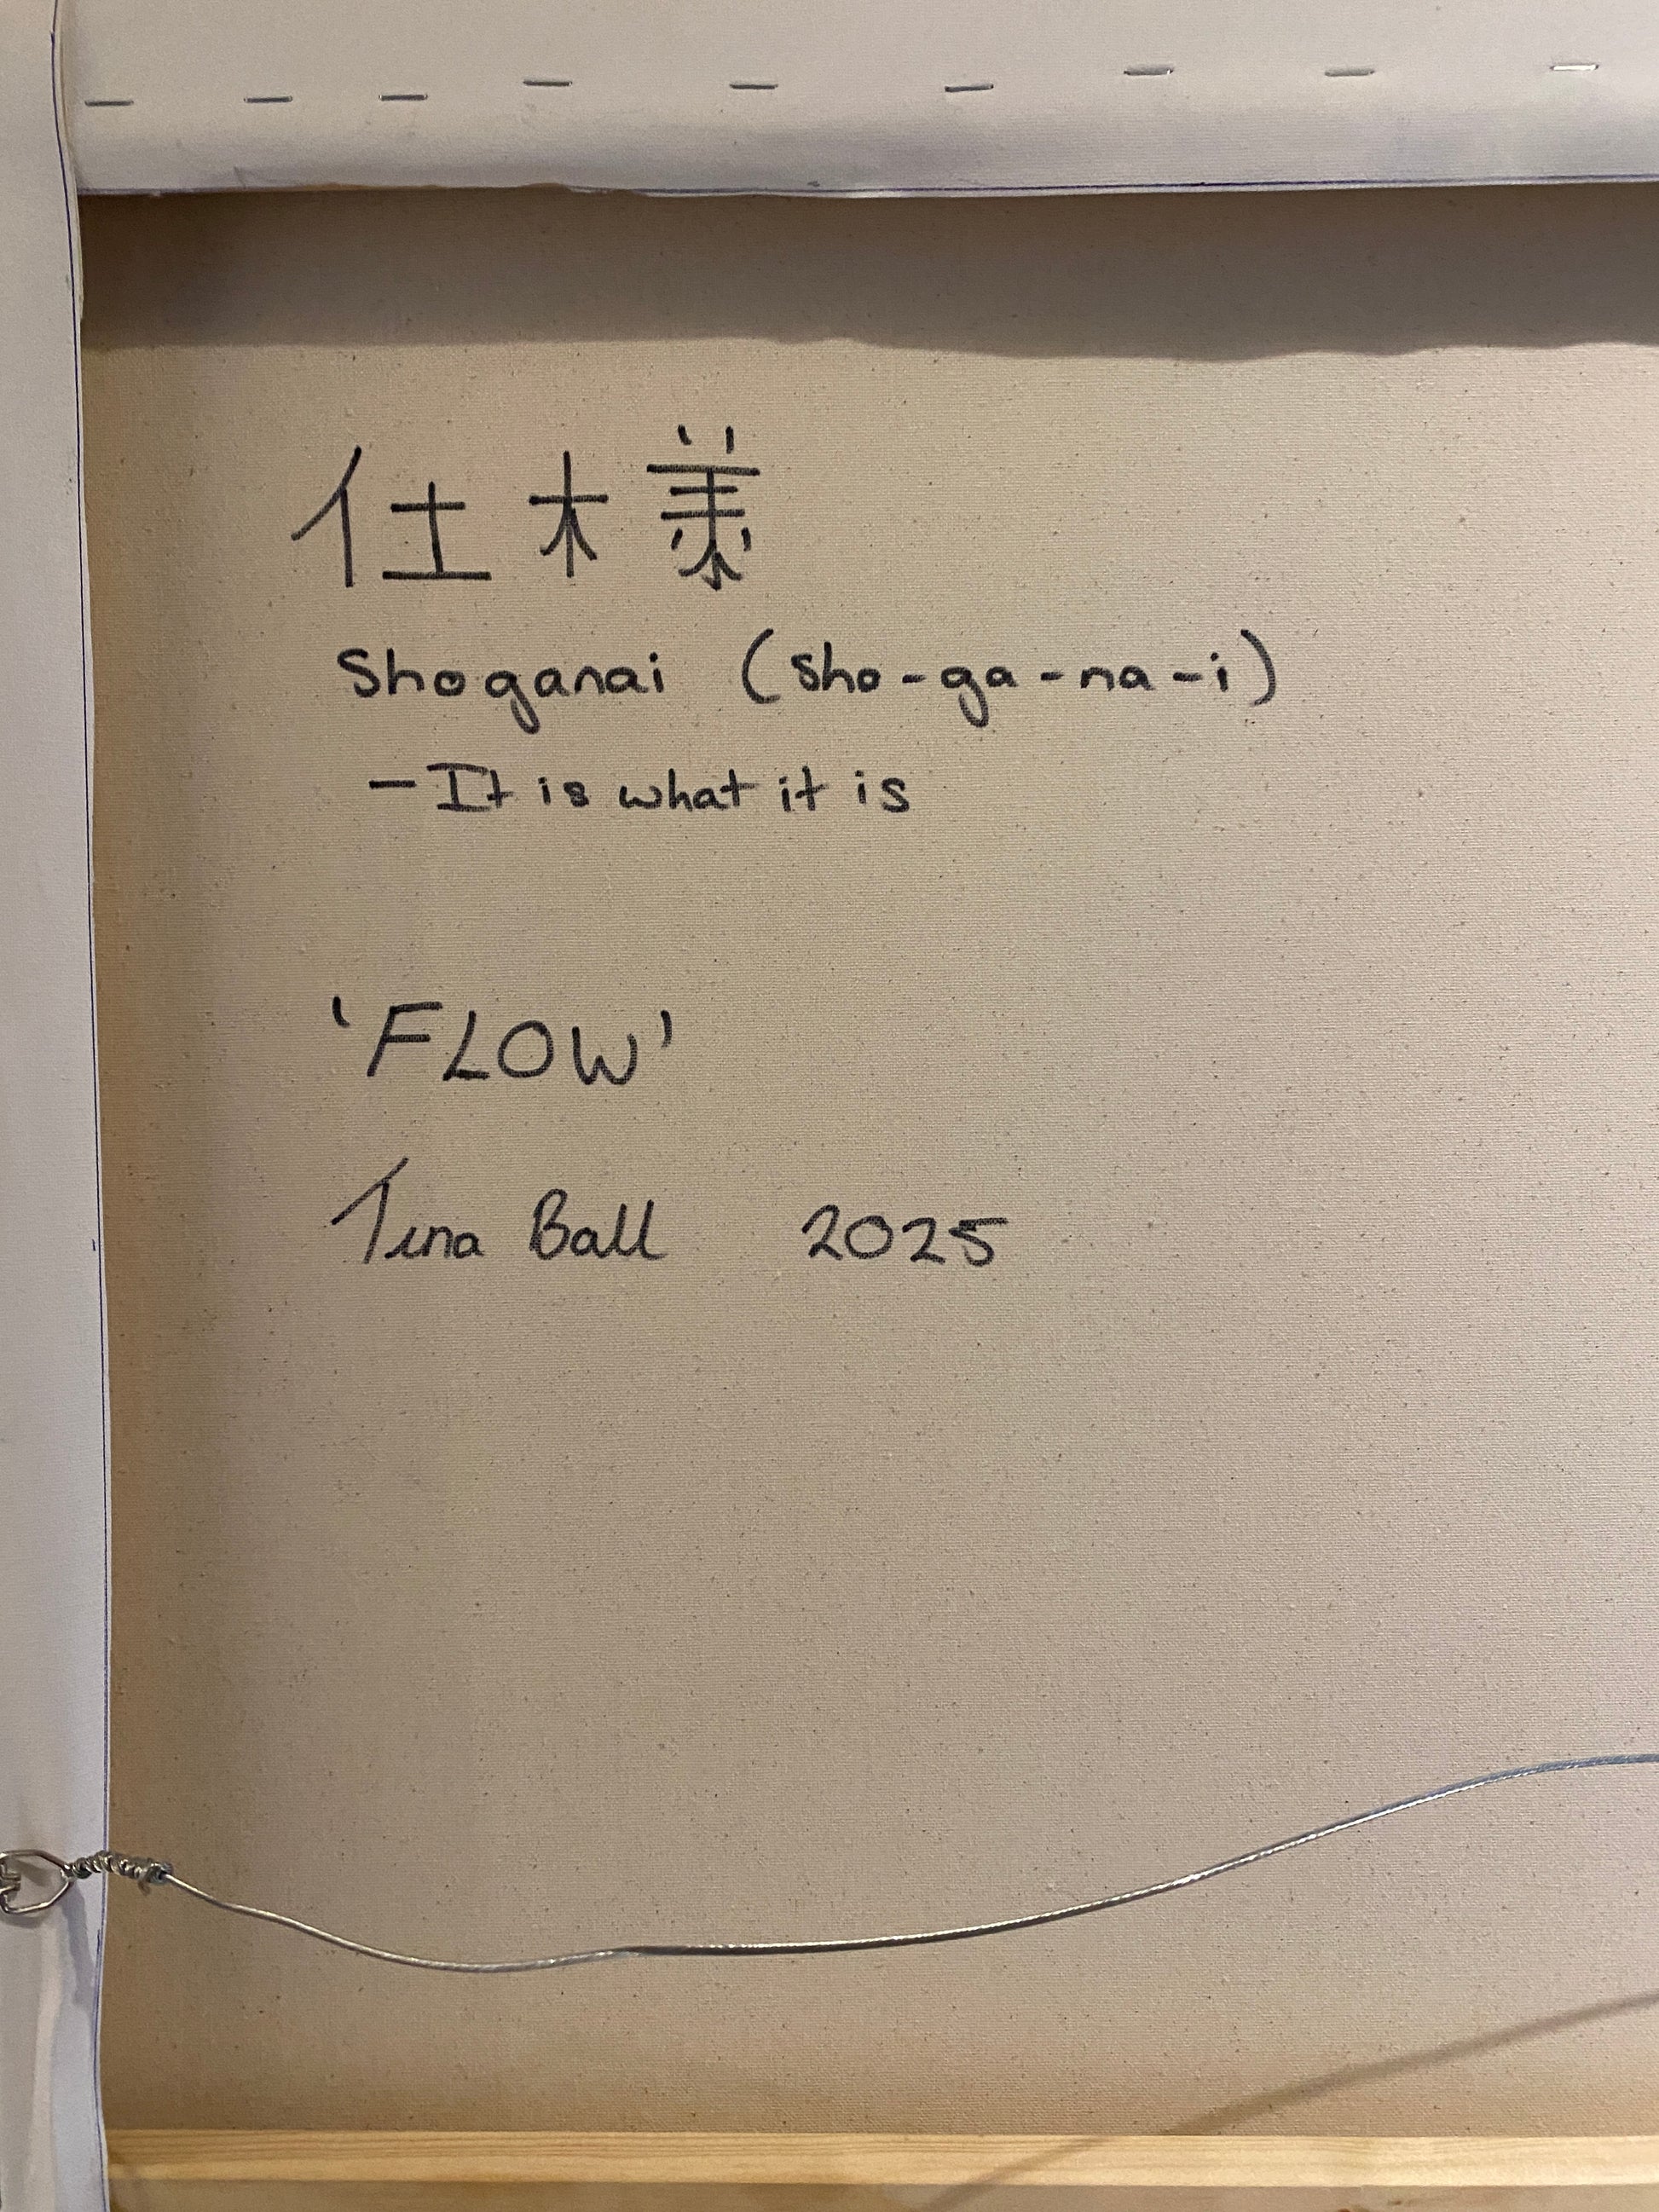 仕様
Shoganai (sho-ga-na-i)
- It is what it is
'FLOW'
Tina Ball 2025